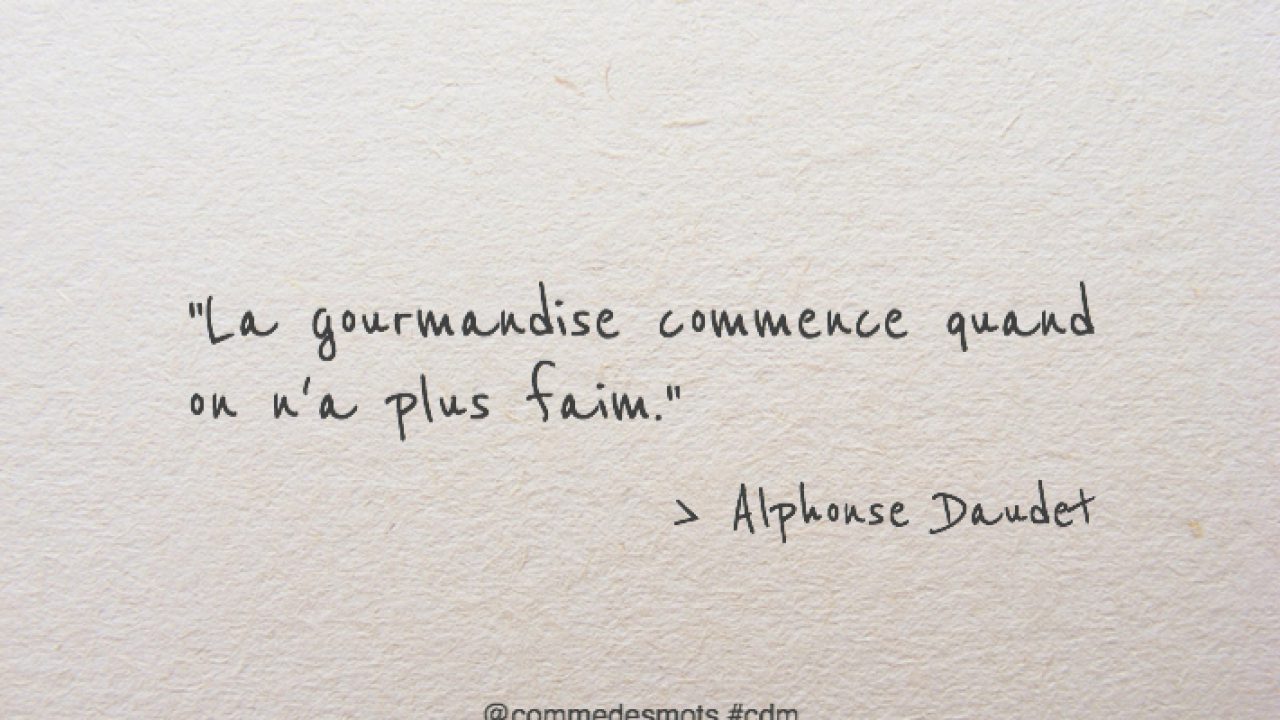 "La gourmandise commence quand
on n'a plus faim."
> Alphonse Daudet
@commedesmots #cdm